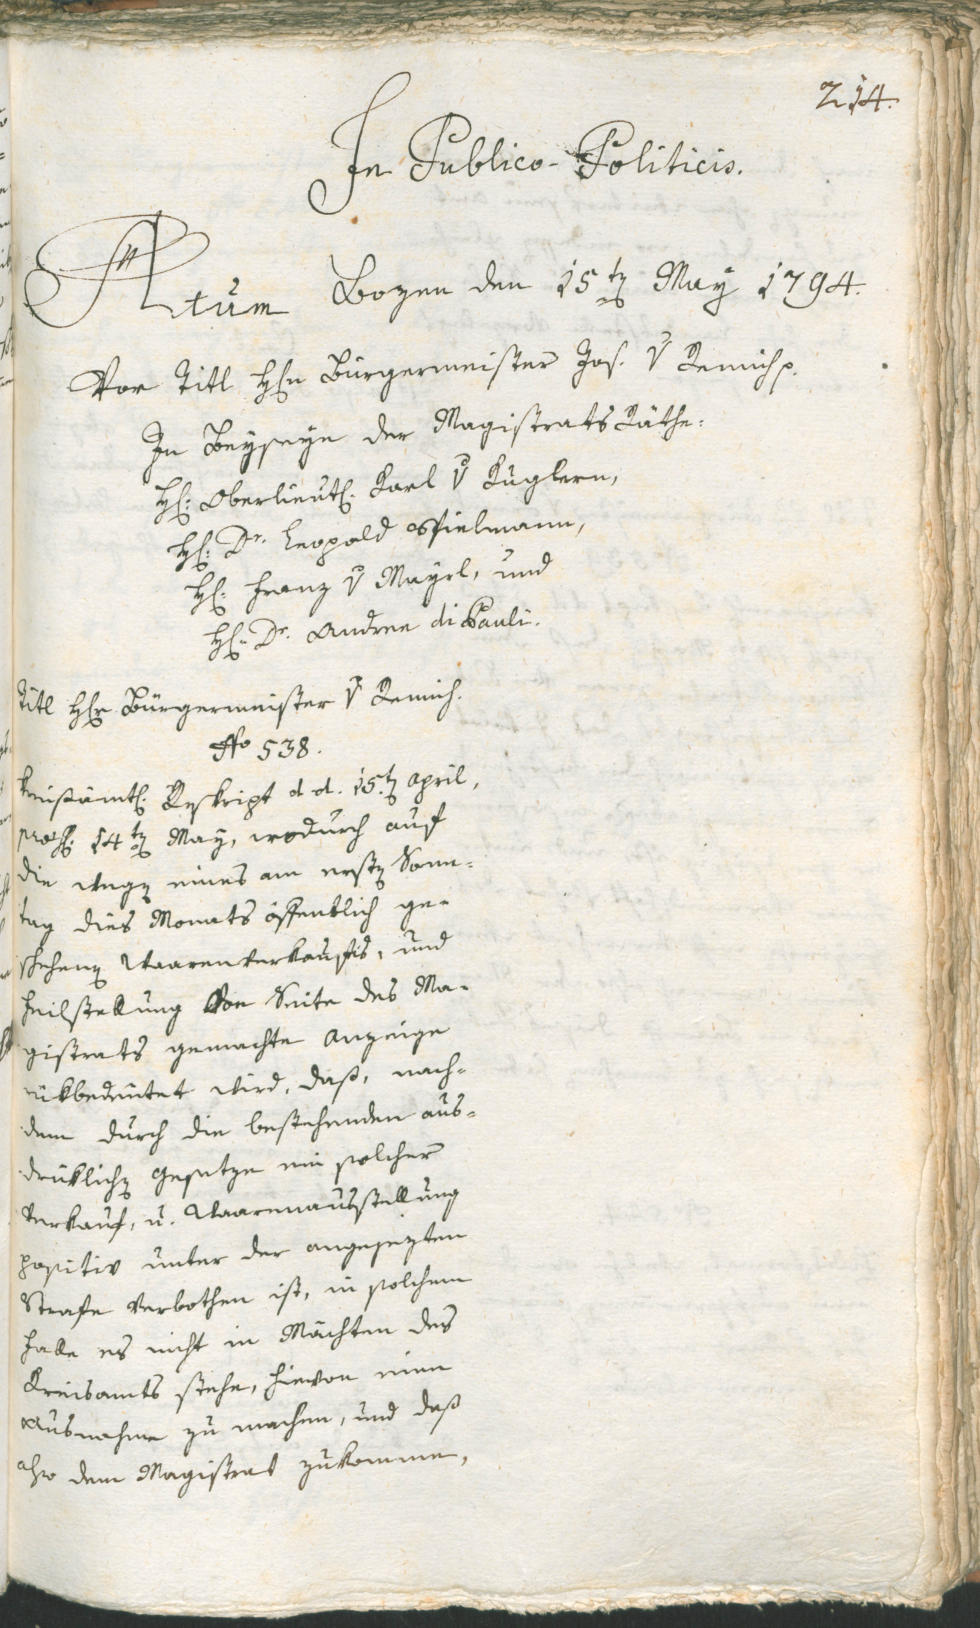 214.
In Publico-Politicis.
Actum Bozen den 15ten May 1794.
Vor Titl Hrn Bürgermeister Jos. v Remich p.
In Beyseyn der Magistrats Räthe:
Hr: Oberlieut. Karl v Kuglern,
Hr: Dr. Leopold Spielmann,
Hr: Franz v Mayrl, und
Hr: Dr. Andree di Pauli.
Titl Hr Bürgermeister v Remich.
No 538.
Kreisämtl. Reskript d. d. 15ten April,
14ten May, wodurch auf
die wegen eines am ersten Sonn-
tag dies Monats öffentlich ge-
schehenen Waarenverkaufs, und
Feilstellung Von Seite des Ma-
gistrats gemachte Anzeige
rükbedeutet wird, daß, nach-
dem durch die bestehenden aus-
drüklichen Gesetze ein solcher
Verkauf, u. Waarenausstellung
positiv unter der angesezten
Strafe Verbothen ist, in solchem
Falle es nicht in Mächten des
Kreisamts stehe, hievon eine
Ausnahme zu machen, und daß
also dem Magistrat zukomme,